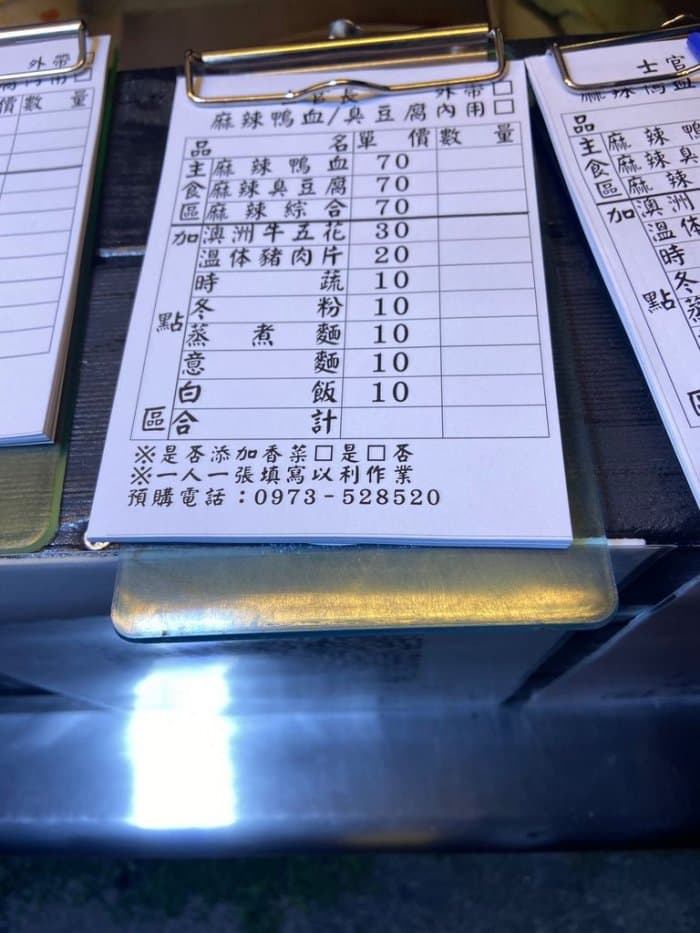 外帶□
麻辣鴨血/臭豆腐內用□
品名 單價 數量
主 麻辣鴨血 70
食 麻辣臭豆腐 70
區 麻辣綜合 70
加 澳洲牛五花 30
溫体豬肉片 20
時蔬 10
冬粉 10
點 蒸煮麵 10
意麵 10
白飯 10
區 合計
※是否添加香菜□是□否
※一人一張填寫以利作業
預購電話：0973-528520
外帶
內用□
價數量
士官
麻辣鴨血
品
主 麻辣鴨
食 麻辣臭
區 麻辣
加 澳洲
溫体
時
冬
點